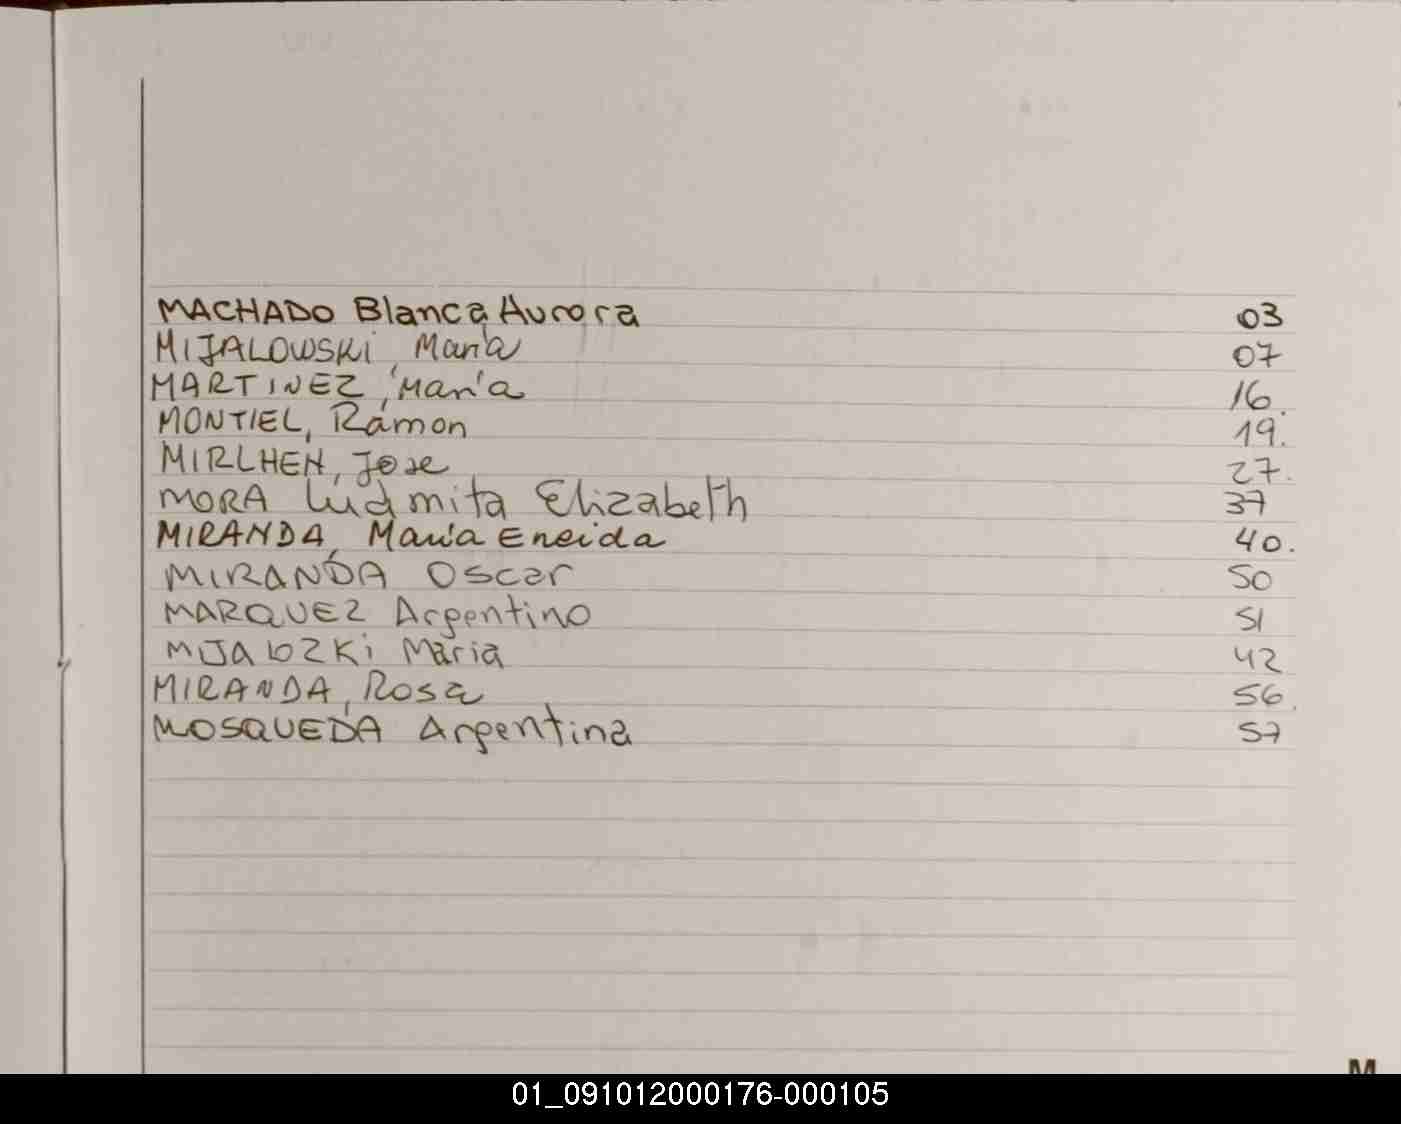 MACHADO Blanca Aurora 03
MIJALOWSKI, María 07
MARTINEZ, María 16.
MONTIEL, Ramon 19.
MIRLHEN, Jose 27.
MORA Ludmita Elizabeth 37
MIRANDA, María Eneida 40.
MIRANDA Oscar 50
MARQUEZ Argentino 51
MIJALOZKi Maria 42
MIRANDA, Rosa 56.
MOSQUEDA Argentina 57
M
01_091012000176-000105